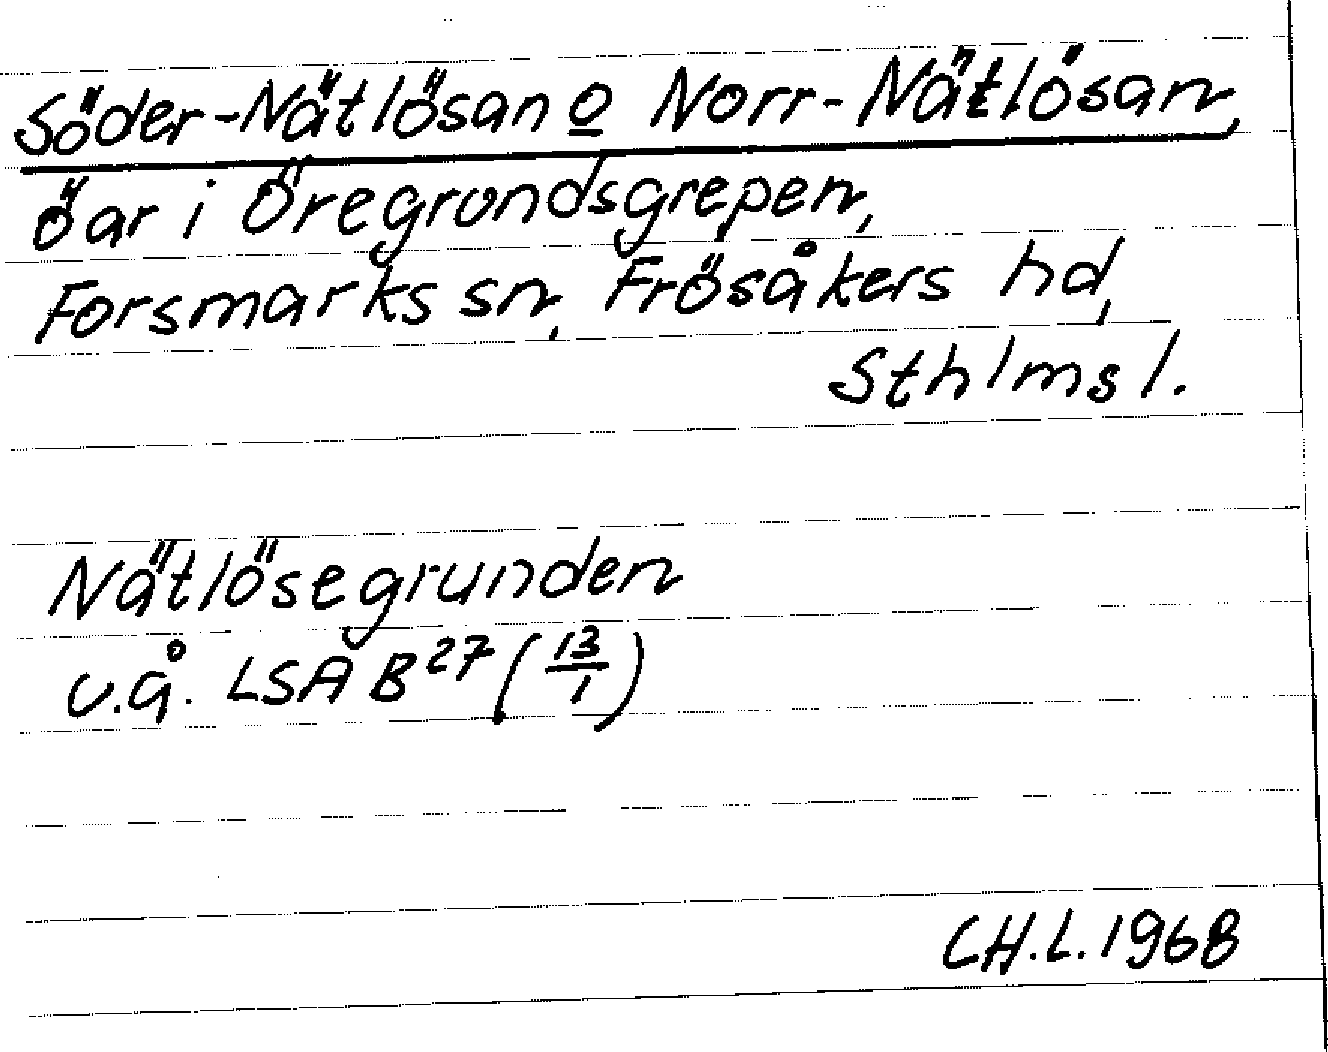 Söder-Nätlösan o Norr-Nätlösan,
öar i Öregrundsgrepen,
Forsmarks sn, Frösåkers hd,
Sthlms l.
Nätlösegrunden
u.å. LSA B 27 (13/1)
CH.L. 1968